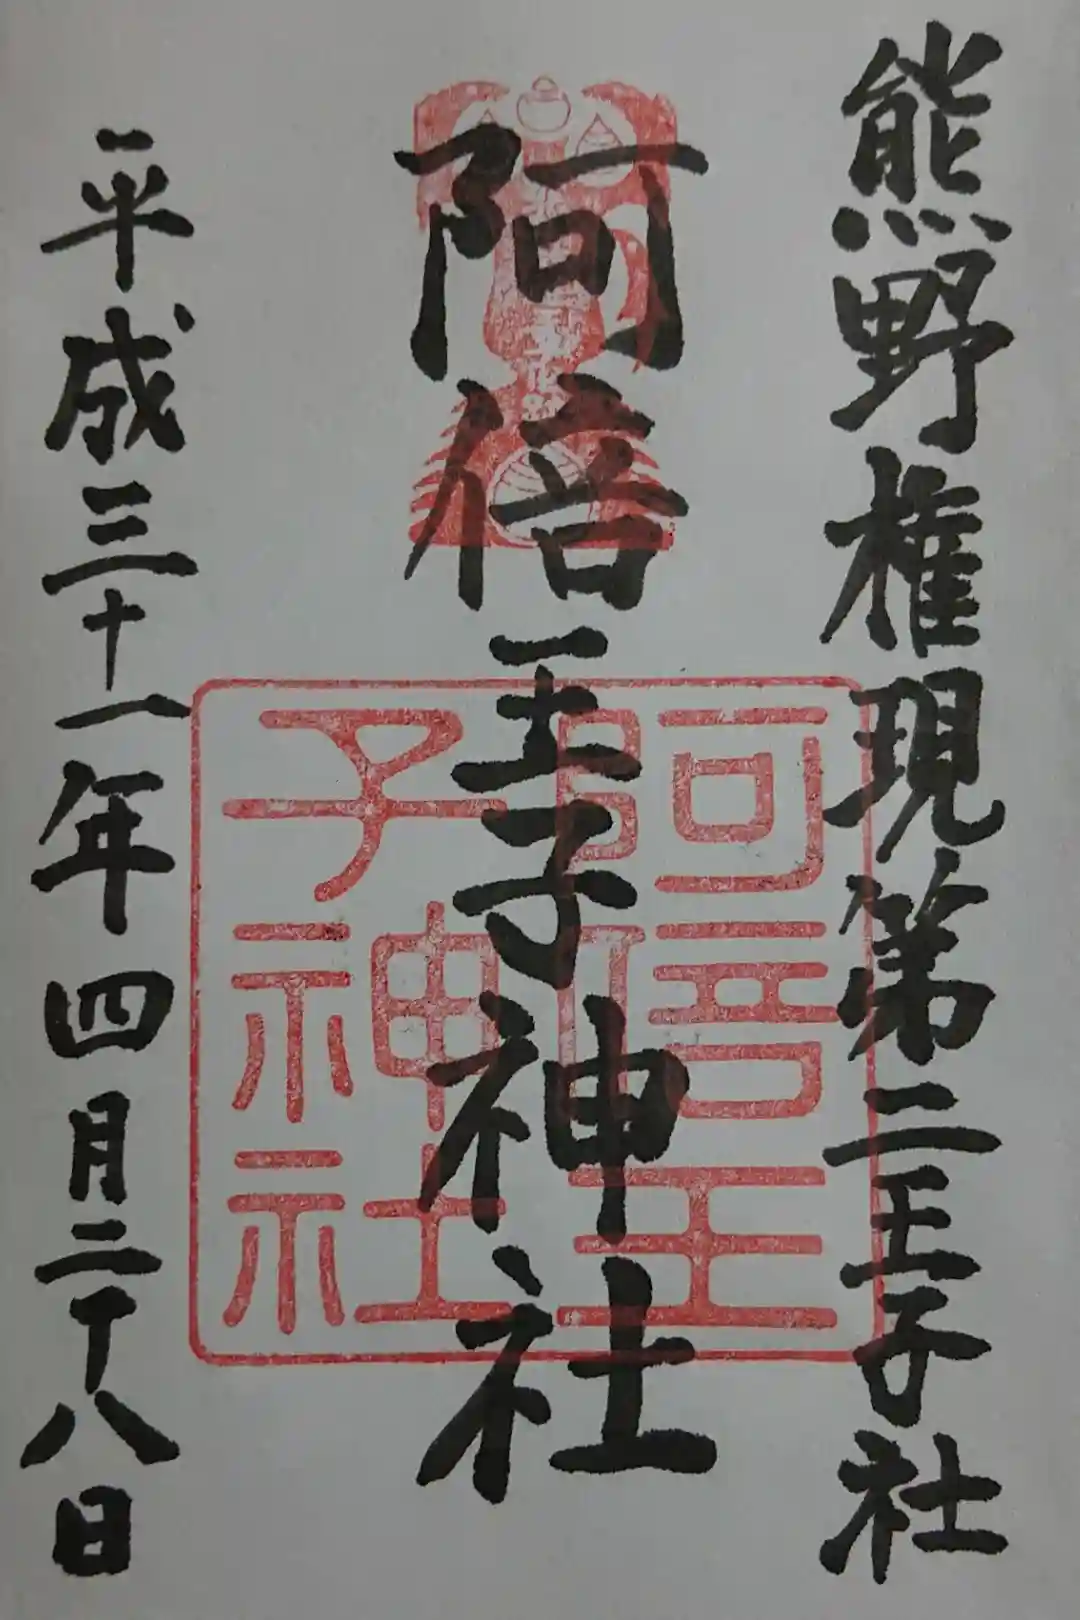 熊野権現第二王子社
阿倍王子神社
阿倍王子神社
平成三十一年四月二十八日